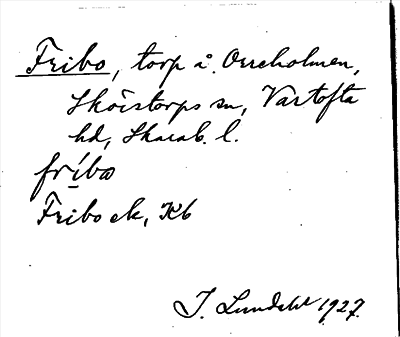 Fribo, torp å Orreholmen,
Sköfstorps sn, Vartofta
hd, Skarab. l.
fríbo
Fribo ek, Kb
J. Lundahl 1927.